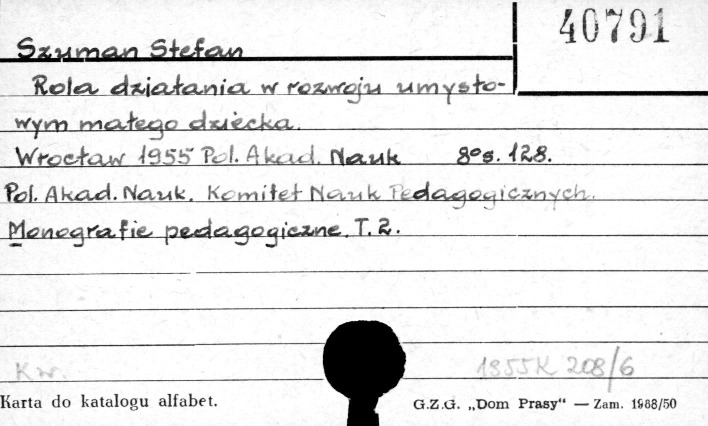 40791
Szuman Stefan
Rola działania w rozwoju umysło-
wym małego dziecka.
Wrocław 1955 Pol. Akad. Nauk 8os. 128.
Pol. Akad. Nauk. Komitet Nauk Pedagogicznych.
Monografie pedagogiczne. T. 2.
Kw. 1955K 208/6
Karta do katalogu alfabet. G.Z.G. „Dom Prasy“ — Zam. 1988/50